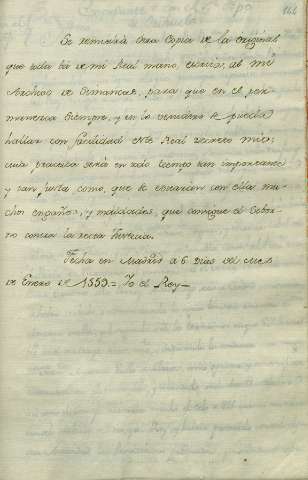 Se remitirá otra Copia de la original
que toda vá de mi Real mano, escrita, al mi
Archivo de Simancas, para que en él per-
manezca siempre, y en lo venidero se pueda
hallar con facilidad este Real decreto mio,
cuia practica será en todo tiempo tan importante
y tan justa como, que se escusarán con ella mu-
chos engaños, y maldades, que consigue el Cohe-
cho contra la recta Justicia.
Fecha en Madrid à 6 Dias del mes
de Enero de 1559 = Yo el Rey =